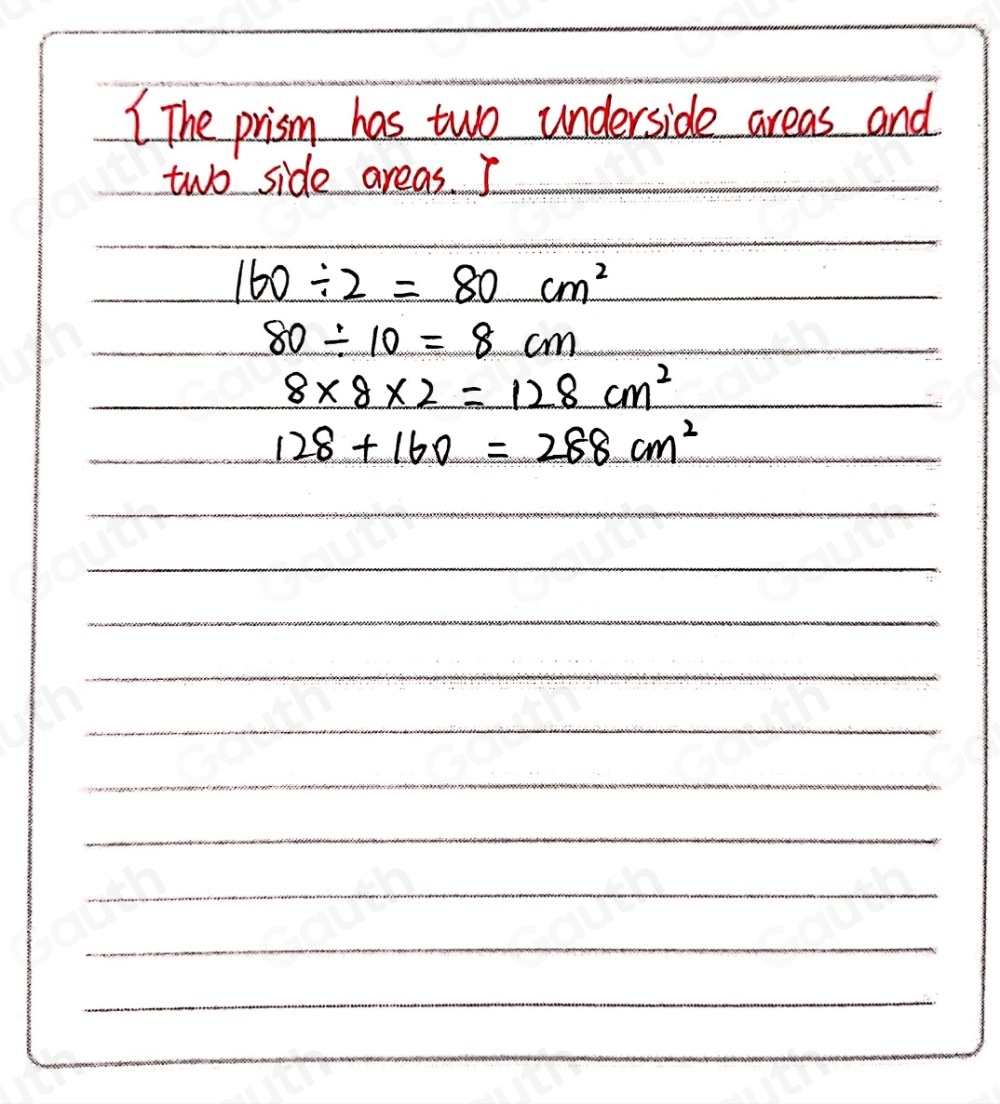 { The prism has two underside areas and
two side areas. ]
160 ÷ 2 = 80 cm²
80 ÷ 10 = 8 cm
8 × 8 × 2 = 128 cm²
128 + 160 = 288 cm²
Gauth